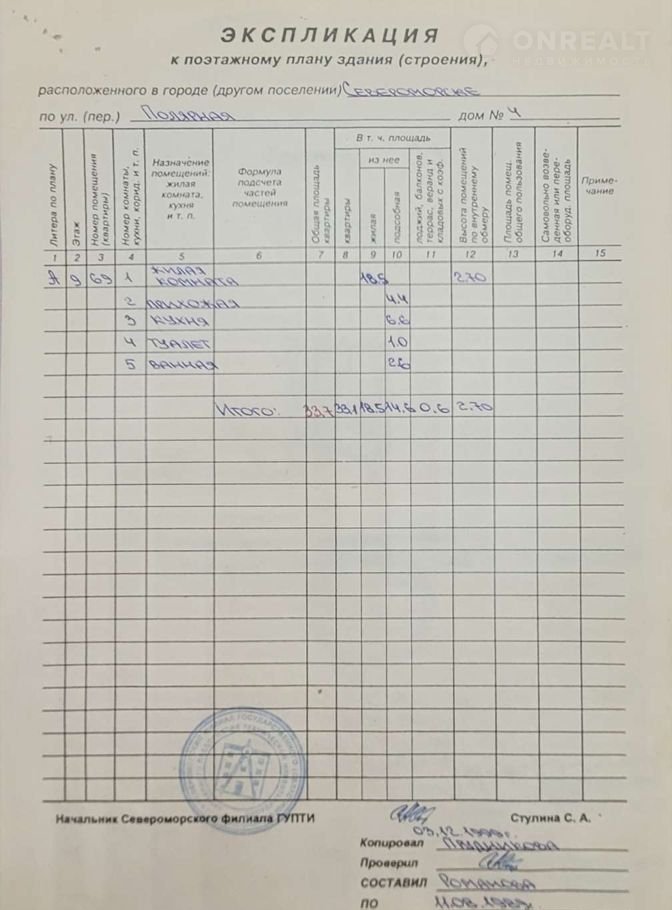 ONREALT
НЕДВИЖИМОСТЬ
ЭКСПЛИКАЦИЯ
к поэтажному плану здания (строения),
расположенного в городе (другом поселении) Североморске
по ул. (пер.) Полярная дом № 4
Литера по плану
Этаж
Номер помещения (квартиры)
Номер комнаты, кухни, корид. и т. п.
Назначение помещений: жилая комната, кухня и т. п.
Формула подсчета частей помещения
Общая площадь квартиры
В т. ч. площадь
квартиры
из нее
жилая
подсобная
лоджий, балконов, террас, веранд и кладовых с коэф.
Высота помещений по внутреннему обмеру
Площадь помещ. общего пользования
Самовольно возведенная или переоборуд. площадь
Примечание
1 2 3 4 5 6 7 8 9 10 11 12 13 14 15
А 9 69 1 жилая комната 18.5 2.70
2 прихожая 4.4
3 кухня 6.6
4 туалет 1.0
5 ванная 2.6
Итого: 33,7 33,1 18.5 14.6 0.6 2.70
Начальник Североморского филиала ГУПТИ Ступина С. А.
03.12.1999г.
Копировал
Проверил
СОСТАВИЛ Романова
ПО 11.08.1989